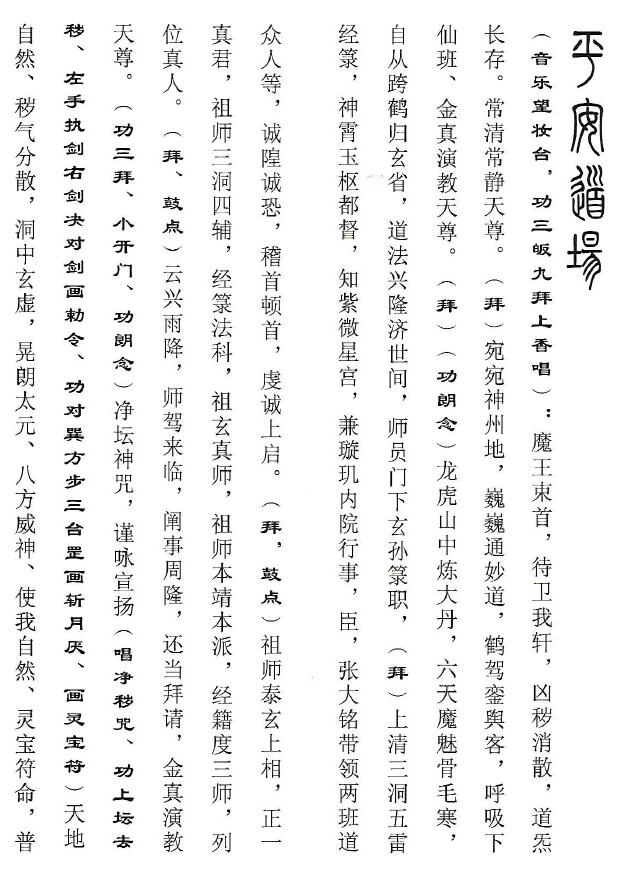 平安道場
（音乐望妆台，功三皈九拜上香唱）：魔王束首，待卫我轩，凶秽消散，道炁
长存。常清常静天尊。（拜）宛宛神州地，巍巍通妙道，鹤驾銮舆客，呼吸下
仙班、金真演教天尊。（拜）（功朗念）龙虎山中炼大丹，六天魔魅骨毛寒，
自从跨鹤归玄省，道法兴隆济世间，师员门下玄孙箓职，（拜）上清三洞五雷
经箓，神霄玉枢都督，知紫微星宫，兼璇玑内院行事，臣，张大铭带领两班道
众人等，诚隍诚恐，稽首顿首，虔诚上启。（拜，鼓点）祖师泰玄上相，正一
真君，祖师三洞四辅，经箓法科，祖玄真师，祖师本靖本派，经籍度三师，列
位真人。（拜、鼓点）云兴雨降，师驾来临，阐事周隆，还当拜请，金真演教
天尊。（功三拜、小开门、功朗念）净坛神咒，谨咏宣扬（唱净秽咒、功上坛去
秽、左手执剑右剑决对剑画勅令、功对巽方步三台罡画斩月厌、画灵宝符）天地
自然、秽气分散，洞中玄虚，晃朗太元、八方威神、使我自然、灵宝符命，普